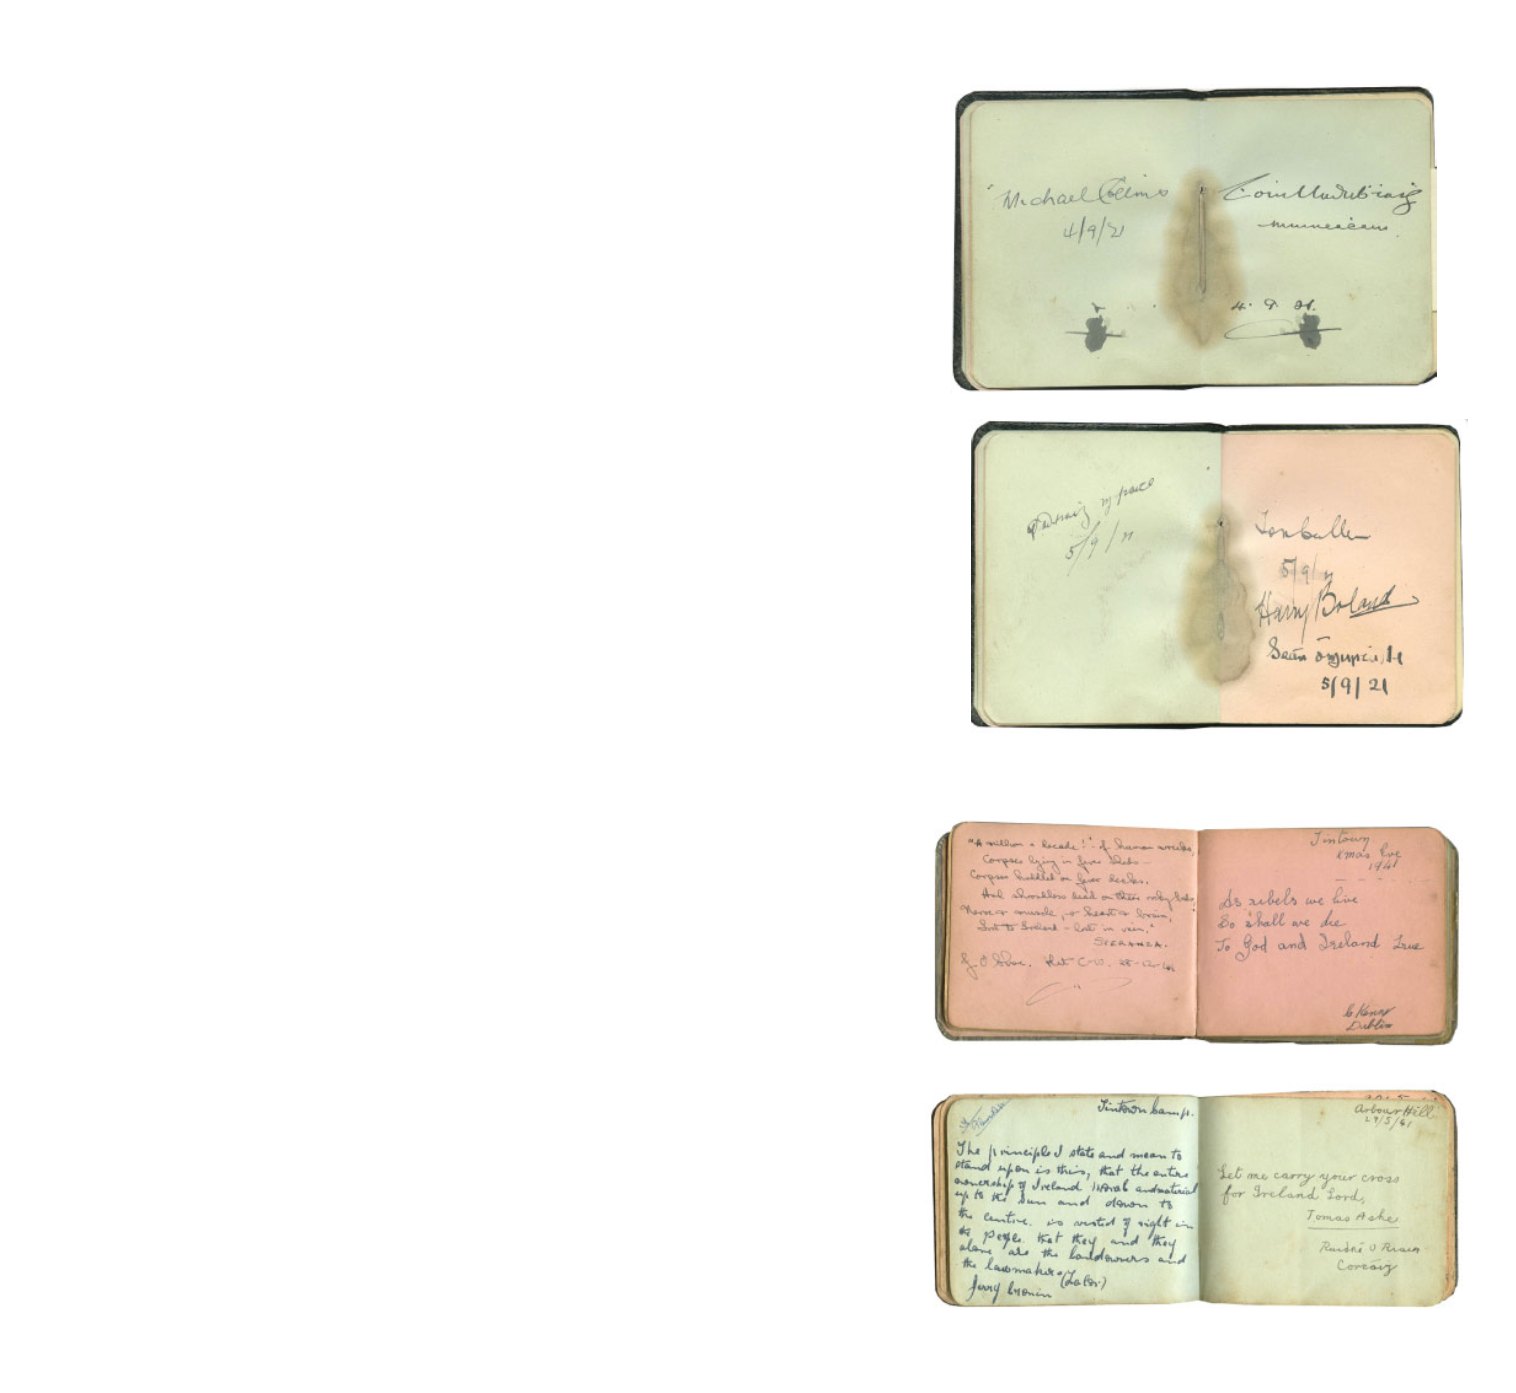 Michael Collins
4/9/21
5/9/21
5/9/21
Harry Boland
Seán
5/9/21
"A million a decade!" of human wrecks,
Corpses lying in fever sheds –
Corpses huddled on decks,
And shroudless dead on their rocky beds,
Nerve & muscle, & heart & brain,
Lost to Ireland – lost in vain."
SPERANZA.
Hut C.W.
Tintown
Xmas Eve
1941
As rebels we live
So shall we die
To God and Ireland true
Kenny
Dublin
Tintown Camp.
The principle I state and mean to
stand upon is this, that the entire
ownership of Ireland moral and material
up to the Sun and down to
the centre is vested of right in
the people that they and they
alone are the landowners and
the lawmakers (Lalor)
Jerry Cronin
Arbour Hill
29/5/41
Let me carry your cross
for Ireland Lord,
Tomas Ashe
Corcaig